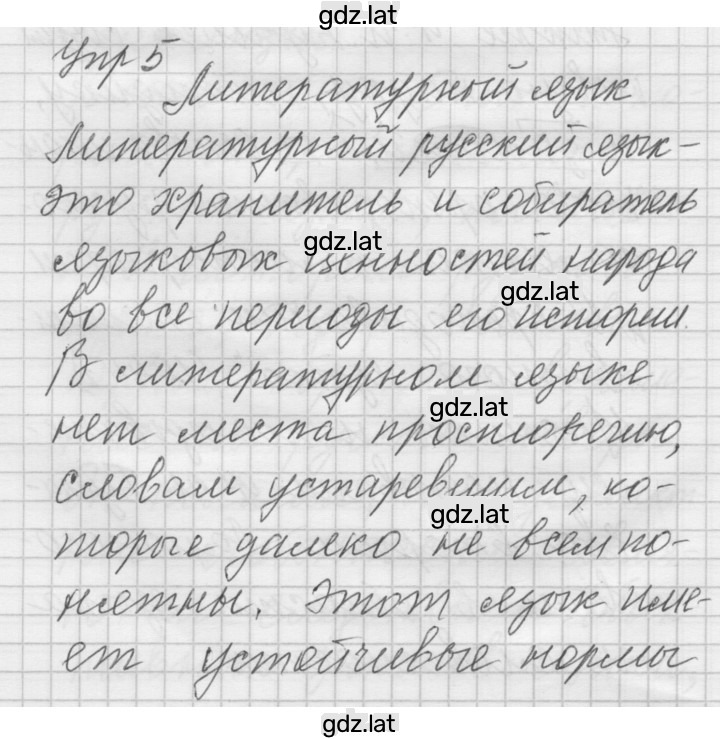 gdz.lat
Упр 5
Литературный язык
Литературный русский язык –
это хранитель и собиратель
gdz.lat
языковых ценностей народа
gdz.lat
во все периоды его истории.
В литературном языке
gdz.lat
нет места просторечию,
словам устаревшим, ко-
gdz.lat
торые далеко не всем по-
нятны. Этот язык име-
ет устойчивые нормы
gdz.lat